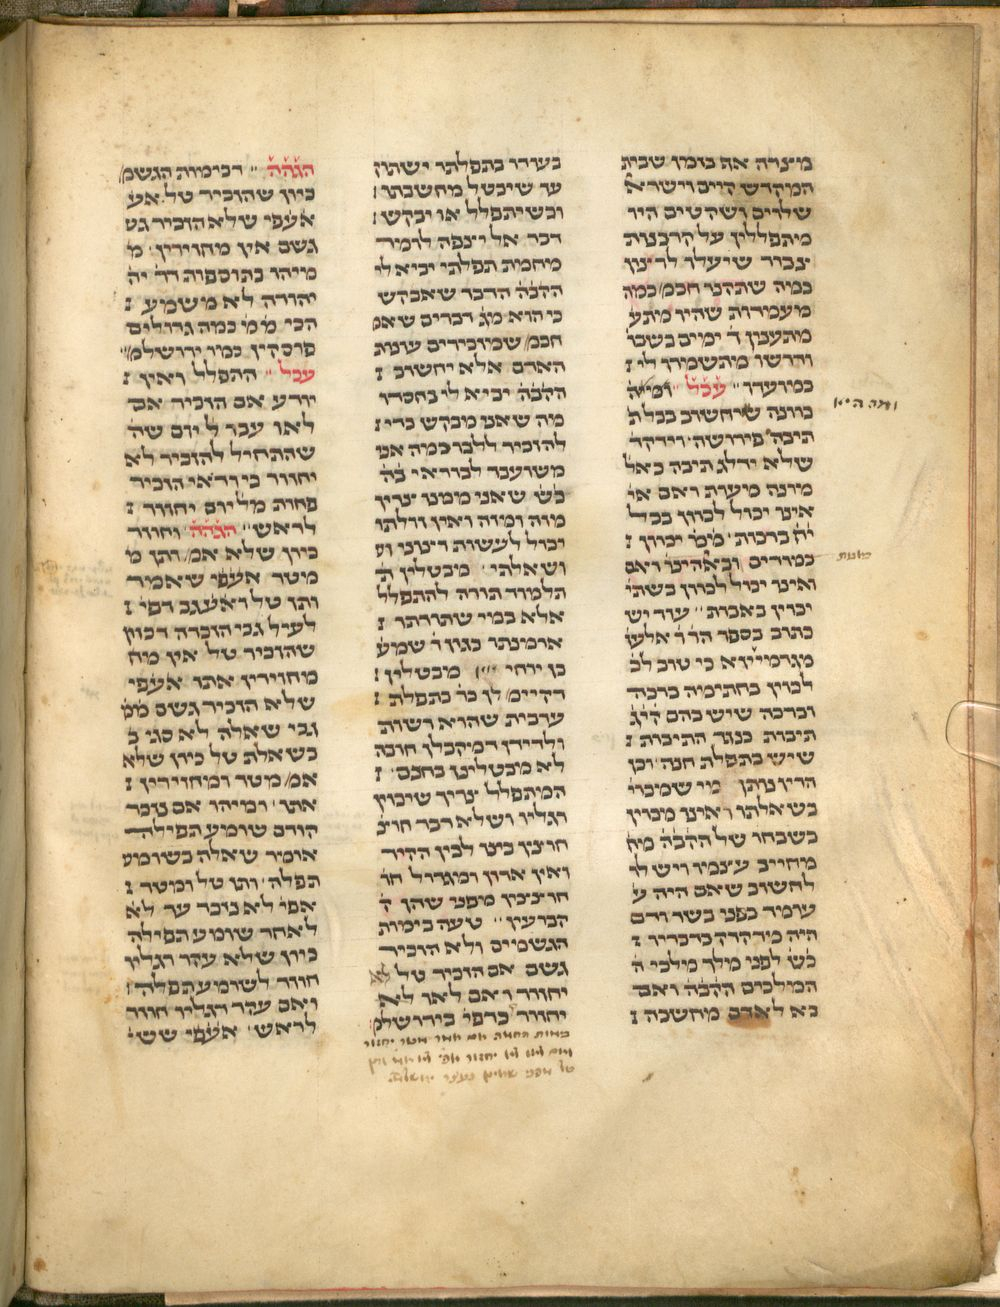 מיצרה אח׳ בזמן שבית
המקדש קיים וישר׳א
שלוים ושקטים היו
מיתפללין על הרבצות
ציבור שיעלו לריצון
כמה שתקנו חכמ׳ כמה
מעמידות שהיו מתע
מתענין ד׳ ימים בשבו
והרשו מהתשמרו לי
במועדו׳ עכ״ל ומ״ה
כוונה שיחשוב בכלת
תיבה פירושה וידקד
שלא ידלג תיבה כאל
מונה מעות ואם אי
אינו יכול לכוון בכל
י״ח ברכות מ״מ יכוין
במודים ובאהינו ואם
ואינו יכול לכוין בשתי
יכוין באבות׳ עוד יש
כתוב בספר הר״ר אלעז
מגרמייזא כי טוב לב
לכוין בחתימה ברכה
וברכה שיש בהם קי״ג
תיבות כנגד התיבות
שיש בתפלת חנה וכן
הדין נותן מי שמכוי׳
בשאלתו ואינו מכוין
בשבחו של הק״בה מח
מחייב עצמו ויש לו
לחשוב שאם היה ע
עומד לפני בשר ודם
היה מידקדק בדבריו
כ״ש לפני מלך מלכי ה
המלכים הקב״ה ואם
בא לאדם מחשבה
בעודו בתפלתו ישתוק
עד שיבטל מחשבתו
וכשיתפלל או יבקש
דבר אל יצפה לומר
מחמת תפלתי יביא לי
הקבה הדבר שאבקש
כי הוא מג׳ דברים שאמ
חכמ׳ שמזכירים עונות
האדם אלא יחשוב
הקבה יביא לי בחסדו
מה שאני מבקש כדי
להזכיר ללבו כמה אני
משועבד לבוראי ב״ה
כ״ש שאני ממנו צריך
מזה ומזה ואין זולתו
יכול לעשות רצוני וש
ושאלתי׳ מבטלין ת
תלמוד תורה להתפלל
אלא במי שתורתו
אומנתו כגון ר׳ שמע
בן יוחי מבטלין
דקיימ׳ לן כר׳ בתפלת
ערבית שהוא רשות
ולדידן דמיקבלן חובה
לא מבטלינן בחנם
המתפלל צריך שיכוין
רגליו ושלא דבר חוצ
חוצץ בינו לבין הקיר
ואין ארון ומגדול חו
חוצצין מפני שהן ק
קבועין׳ טעה בימות
הגשמים ולא הזכיר
גשם אם הזכיר טל לא
יחזור ואם לאו לא
יחזור כדפי׳ בירושלמ׳
בימות החמה אם אמר מטר יחזור
ואם לאו לא יחזור
טל מפני שאין נעצר ירושלמי
הגהה דבימות הגשמ׳
כיון שהזכיר טל. אע
אעפי שלא הזכיר גש
גשם אין מחזירין׳ מ
מיהו בתוספות דר׳ יה
יהודה לא משמע
הכי מ״מ כמה גדולים
פוסקין כמו ירושלמי׳
עכל׳ התפלל ואין
יודע אם הזכיר אם
לאו עבר ל׳ יום שה
שהתחיל להזכיר לא
יחזור כיודאי הזכיר
פחות מל׳ יום יחזור
לראש׳ הגהה וחוזר
כיון שלא אמ׳ ותן מ
מטר אעפי שאמר
ותן טל ואע״ג דפי׳
לעיל גבי הזכרה דכוון
שהזכיר טל אין מח
מחזירין אתו אעפי
שלא הזכיר גשם ממ
גבי שאלה לא סגי ב
בשאלת טל כיון שלא
אמ׳ מטר ומחזירין
אתו׳ ומיהו אם נזכר
קודם שומע תפילה
אומר שאלה בשומע
תפלה ותן טל ומטר
אפי׳ לא נזכר עד לא
לאחר שומע תפילה
כיון שלא עקר רגליו
חוזר לשומע תפלה
ואם עקר רגליו חוזר
לראש׳ אעפי ששי